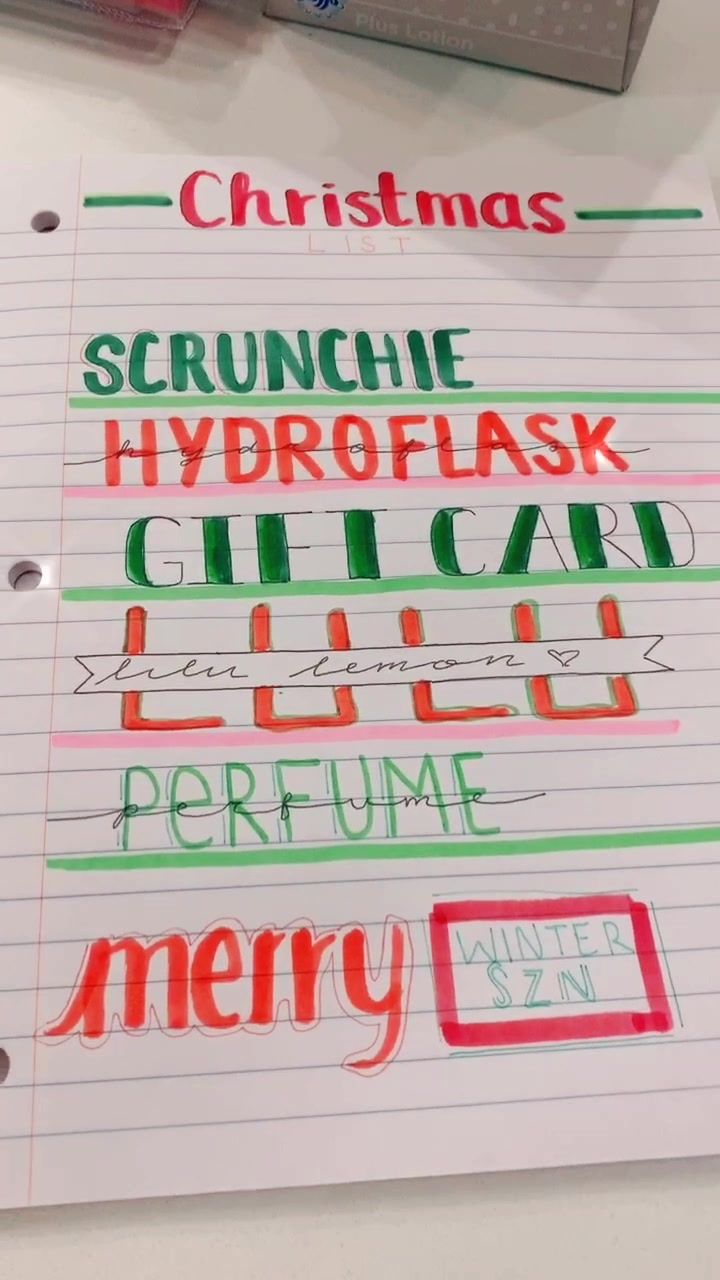 Plus Lotion
Christmas
LIST
SCRUNCHIE
HYDROFLASK
hydroflask
GIFT CARD
LULU
lulu lemon ♡
PERFUME
perfume
merry
WINTER
SZN